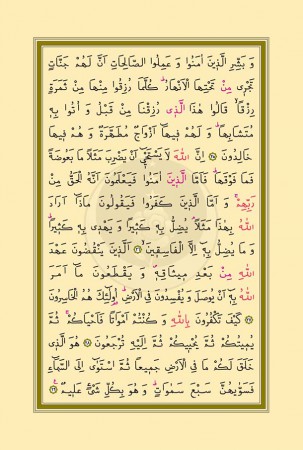 وَ بَشِّرِ الَّذِينَ اٰمَنُوا وَ عَمِلُوا الصَّالِحَاتِ اَنَّ لَهُمْ جَنَّاتٍ
تَجْرِى مِنْ تَحْتِهَا الْاَنْهَارُ كُلَّمَا رُزِقُوا مِنْهَا مِنْ ثَمَرَةٍ
رِزْقًا قَالُوا هٰذَا الَّذِى رُزِقْنَا مِنْ قَبْلُ وَ اُتُوا بِهِ
مُتَشَابِهًا وَ لَهُمْ فِيهَا اَزْوَاجٌ مُطَهَّرَةٌ وَ هُمْ فِيهَا
خَالِدُونَ ﴿٢٥﴾ اِنَّ اللّٰهَ لَا يَسْتَحْيِى اَنْ يَضْرِبَ مَثَلًا مَا بَعُوضَةً
فَمَا فَوْقَهَا فَاَمَّا الَّذِينَ اٰمَنُوا فَيَعْلَمُونَ اَنَّهُ الْحَقُّ مِنْ
رَبِّهِمْ وَ اَمَّا الَّذِينَ كَفَرُوا فَيَقُولُونَ مَاذَا اَرَادَ
اللّٰهُ بِهٰذَا مَثَلًا يُضِلُّ بِهِ كَثِيرًا وَ يَهْدِى بِهِ كَثِيرًا
وَ مَا يُضِلُّ بِهِ اِلَّا الْفَاسِقِينَ ﴿٢٦﴾ اَلَّذِينَ يَنْقُضُونَ عَهْدَ
اللّٰهِ مِنْ بَعْدِ مِيثَاقِهِ وَ يَقْطَعُونَ مَا اَمَرَ
اللّٰهُ بِهِ اَنْ يُوصَلَ وَ يُفْسِدُونَ فِى الْاَرْضِ اُولٰئِكَ هُمُ الْخَاسِرُونَ
﴿٢٧﴾ كَيْفَ تَكْفُرُونَ بِاللّٰهِ وَ كُنْتُمْ اَمْوَاتًا فَاَحْيَاكُمْ ثُمَّ
يُمِيتُكُمْ ثُمَّ يُحْيِيكُمْ ثُمَّ اِلَيْهِ تُرْجَعُونَ ﴿٢٨﴾ هُوَ الَّذِى
خَلَقَ لَكُمْ مَا فِى الْاَرْضِ جَمِيعًا ثُمَّ اسْتَوٰى اِلَى السَّمَاءِ
فَسَوّٰيهُنَّ سَبْعَ سَمٰوَاتٍ وَ هُوَ بِكُلِّ شَىْءٍ عَلِيمٌ ﴿٢٩﴾